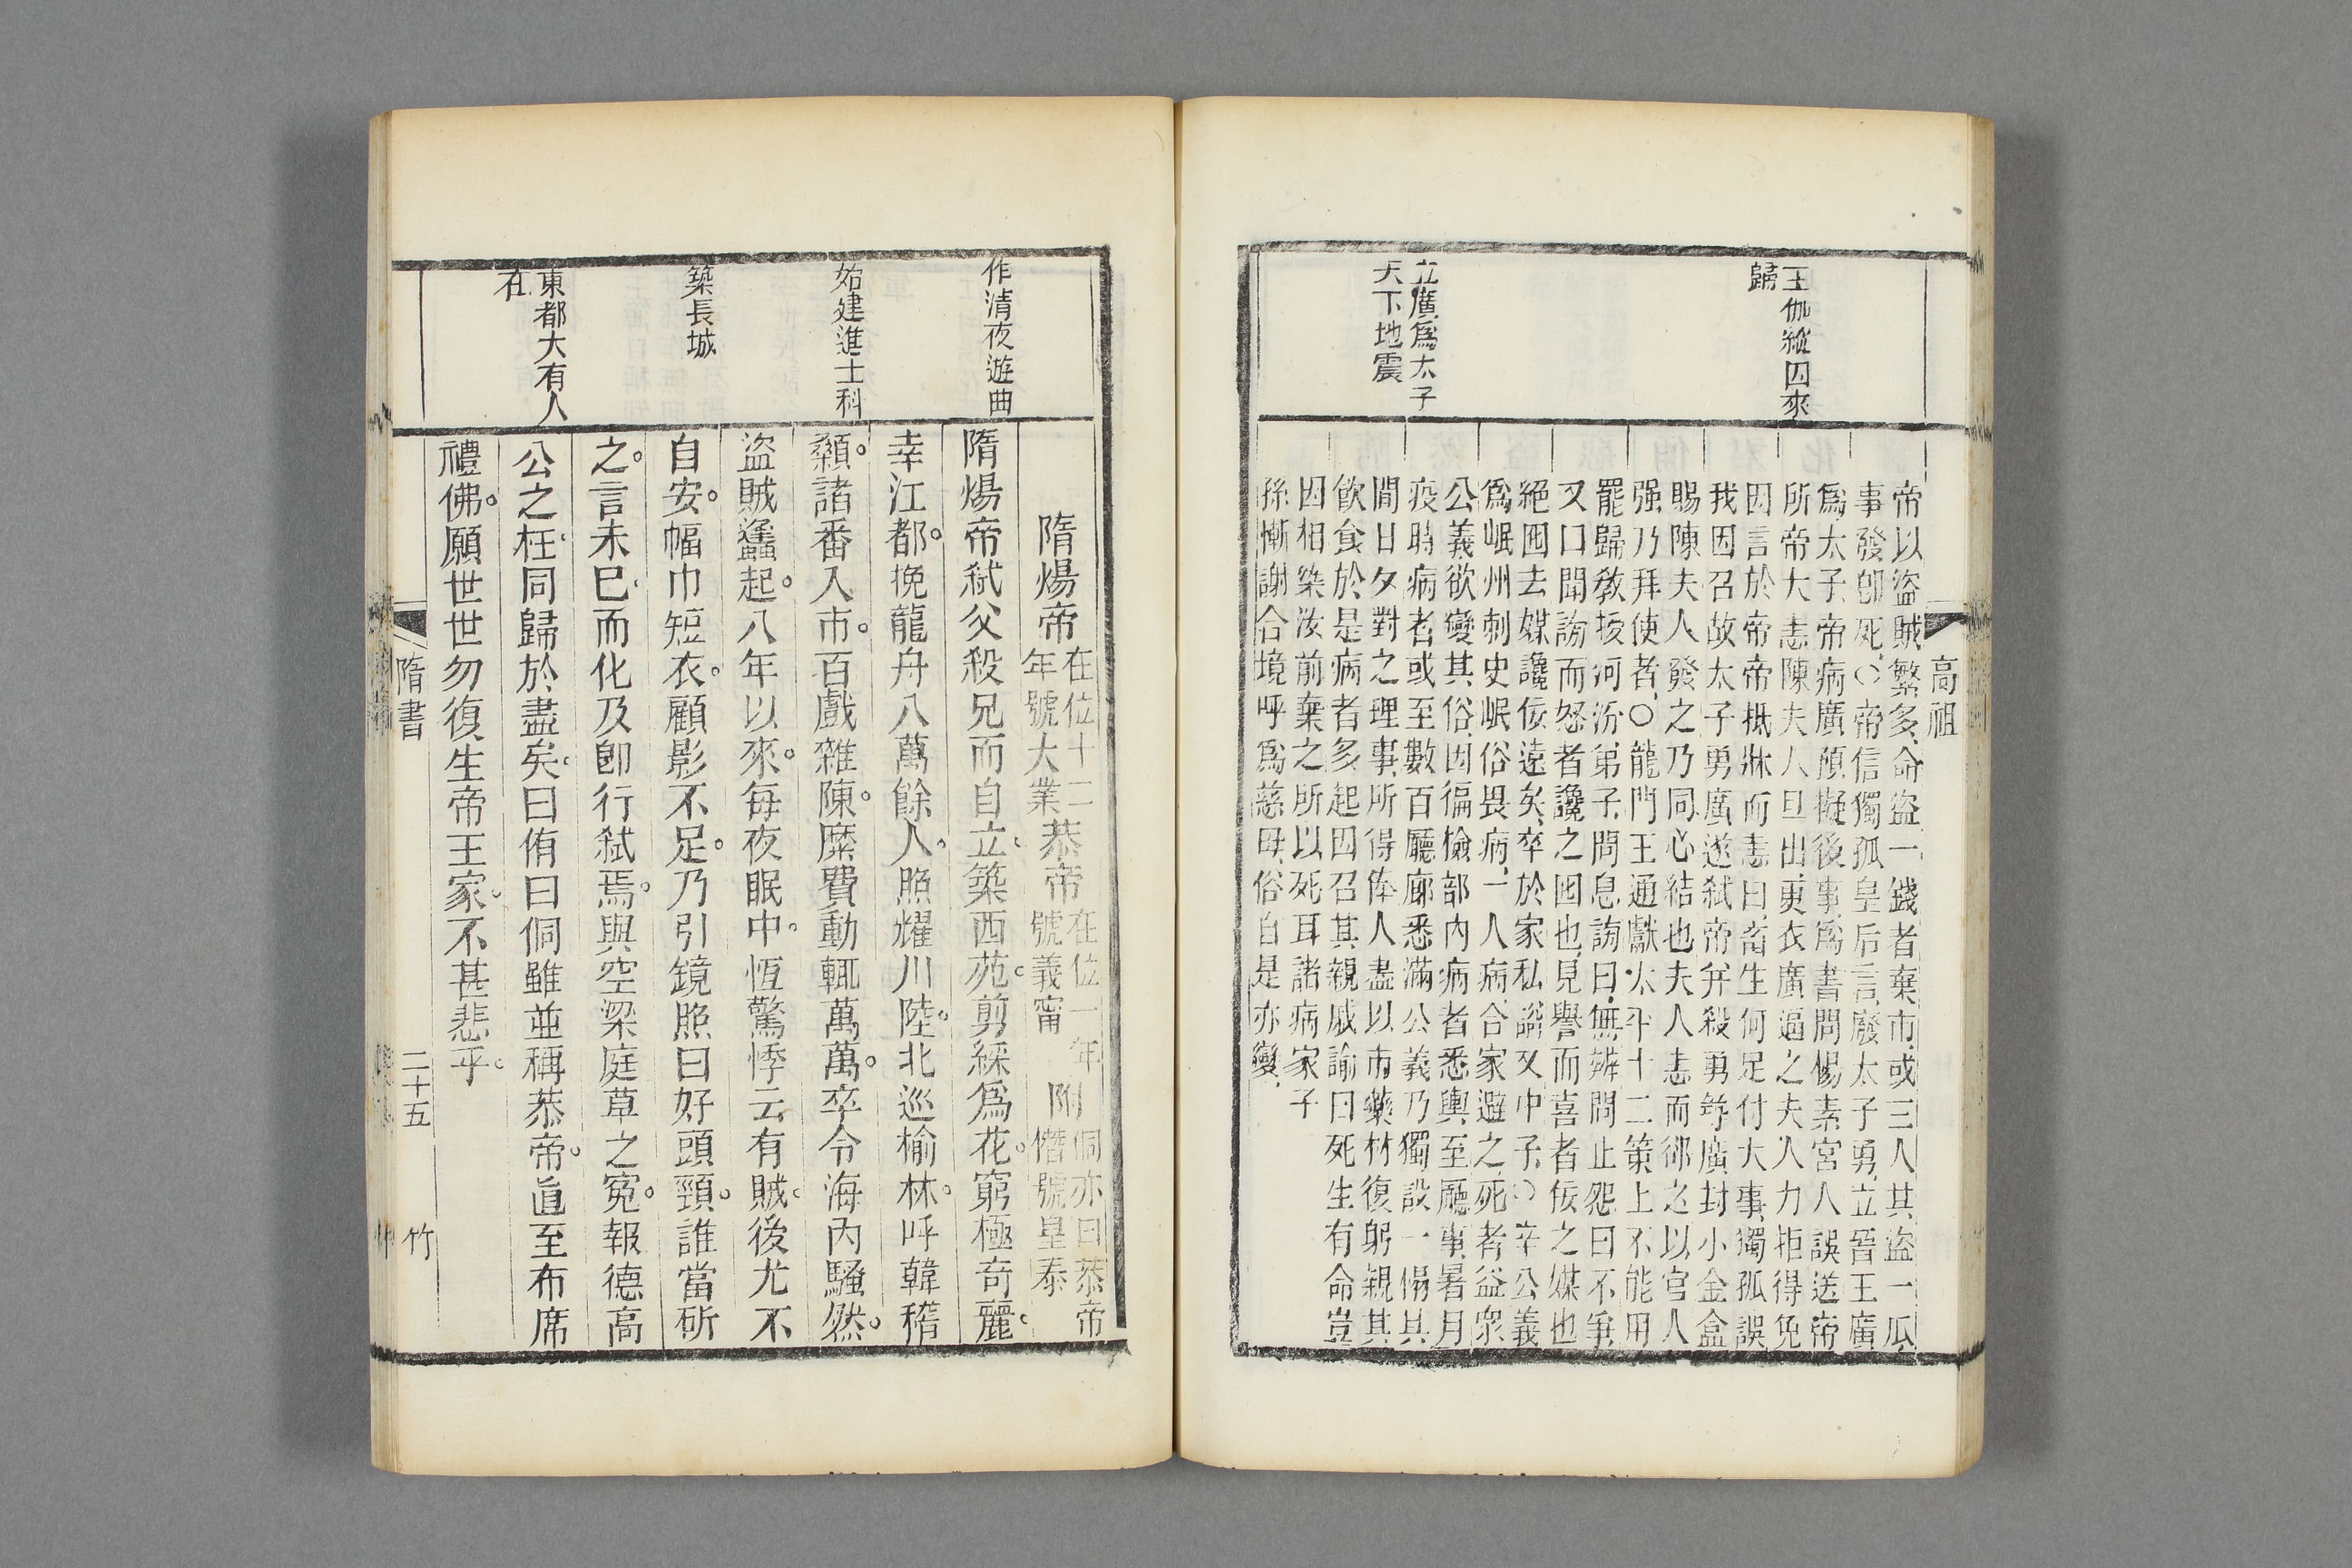 高祖
王伽縱囚來
歸
立廣爲太子
天下地震
帝以盜賊繁多命盜一錢者棄市或三人其盜一瓜
事發卽死○帝信獨孤皇后言廢太子勇立晉王廣
爲太子帝病廣預擬後事爲書問楊素宮人誤送帝
所帝大恚陳夫人旦出更衣廣逼之夫人力拒得免
因言於帝帝抵牀而恚曰畜生何足付大事獨孤誤
我因召故太子勇廣遂弑帝并殺勇等廣封小金盒
賜陳夫人發之乃同心結也夫人恚而郤之以宮人
强乃拜使者○龍門王通獻太平十二策上不能用
罷歸敎授河汾弟子問息謗曰無辨問止怨曰不爭
又曰聞謗而怒者讒之囮也見譽而喜者佞之媒也
絕囮去媒讒佞遠矣卒於家私謚文中子○辛公義
爲岷州刺史岷俗畏病一人病合家避之死者益衆
公義欲變其俗因徧檢部內病者悉輿至廳事暑月
疫時病者或至數百廳廊悉滿公義乃獨設一榻其
間日夕對之理事所得俸人盡以市藥材復躬親其
飮食於是病者多起因召其親戚諭曰死生有命豈
因相染汝前棄之所以死耳諸病家子
孫慚謝合境呼爲慈母俗自是亦變
作清夜遊曲
始建進士科
築長城
東都大有人
在
隋煬帝 在位十二年號大業 恭帝 在位一年號義甯 附 侗亦曰恭帝僭號皇泰
隋煬帝弑父殺兄而自立築西苑剪綵爲花窮極奇麗
幸江都挽龍舟八萬餘人照耀川陸北巡楡林呼韓稽
顙諸番入市百戲雜陳糜費動輒萬萬卒令海內騷然
盜賊蠭起八年以來每夜眠中恆驚悸云有賊後尤不
自安幅巾短衣顧影不足乃引鏡照曰好頭頸誰當斫
之言未巳而化及卽行弑焉與空梁庭草之寃報德高
公之枉同歸於盡矣曰侑曰侗雖並稱恭帝直至布席
禮佛願世世勿復生帝王家不甚悲乎
隋書
二十五
竹